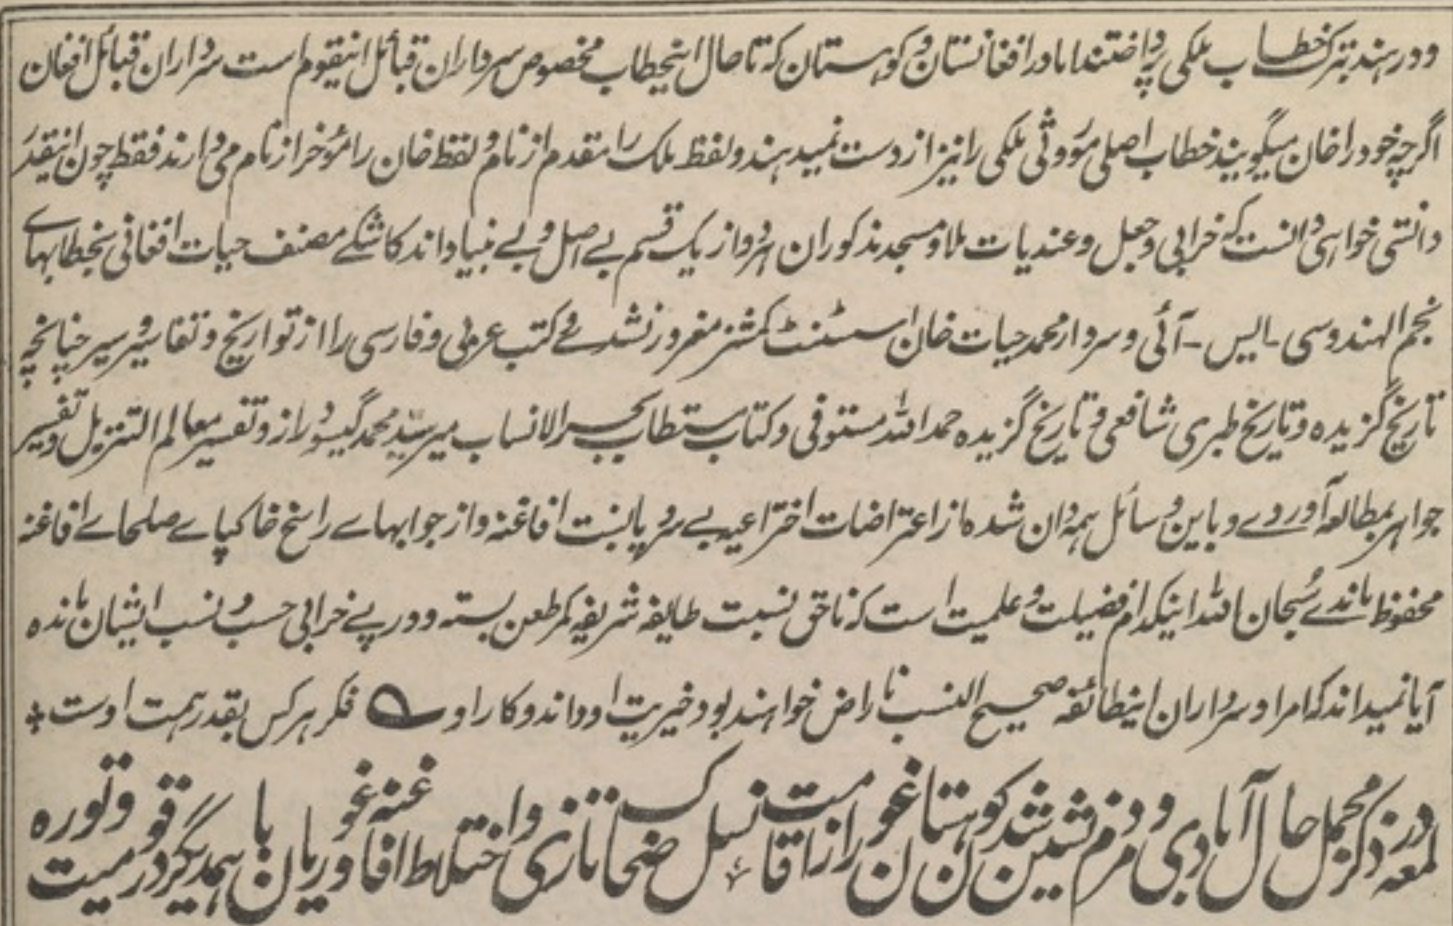 ودر هند بترک خطاب ملکی پرداختند اما در افغانستان و کوهستان که تا حال اینخطاب مخصوص سرداران قبائل اینقوم است سرداران قبائل افغان
اگرچه خود را خان میگویند خطاب اصلی موروثی ملکی را نیز از دست نمیدهند ولفظ ملک را مقدم از نام ولفظ خان را مؤخر از نام می دارند فقط چون اینقدر
دانستی خواهی دانست که خرابی وجعل وعندیات ملا ومسجد مذکوران هردو از یک قسم بے اصل و بے بنیاد اند کاشکے مصنف حیات افغانی بخطابهاے
نجم الهند وسی ۔ ایس ۔ آئی وسردار محمد حیات خان اسسٹنٹ کمشنر مغرور نشدے کتب عربی وفارسی را از تواریخ وتفاسیر وسیر چنانچه
تاریخ گزیده وتاریخ طبری شافعی وتاریخ گزیده حمد الله مستوفی وکتاب مستطاب بحر الانساب میر سید محمد گیسو دراز وتفسیر معالم التنزیل وتفسیر
جواهر بمطالعه آوردے وباین وسائل همه دان شده از اعتراضات اختراعیه بے سروپا بنسبت افاغنه واز جوابهاے راسخ خاکپاے صلحاے افاغنه
محفوظ ماندے سبحان الله اینکدام فضیلت وعلمیت است که ناحق نسبت طایفه شریفه کمر طعن بسته ودر پے خرابی حسب ونسب ایشان مانده
آیا نمیداند که امرا وسرداران اینطائفه صحیح النسب ناراض خواهند بود خیریت او داند وکار او ؎ فکر هر کس بقدر همت اوست
لمعه در ذکر مجمل حال آبادی و مردم نشین شدن کوهستان غور از اقامت نسل ضحاک تازی واختلاط افاغنه وغوریان با همدیگر در قومیت وتوره